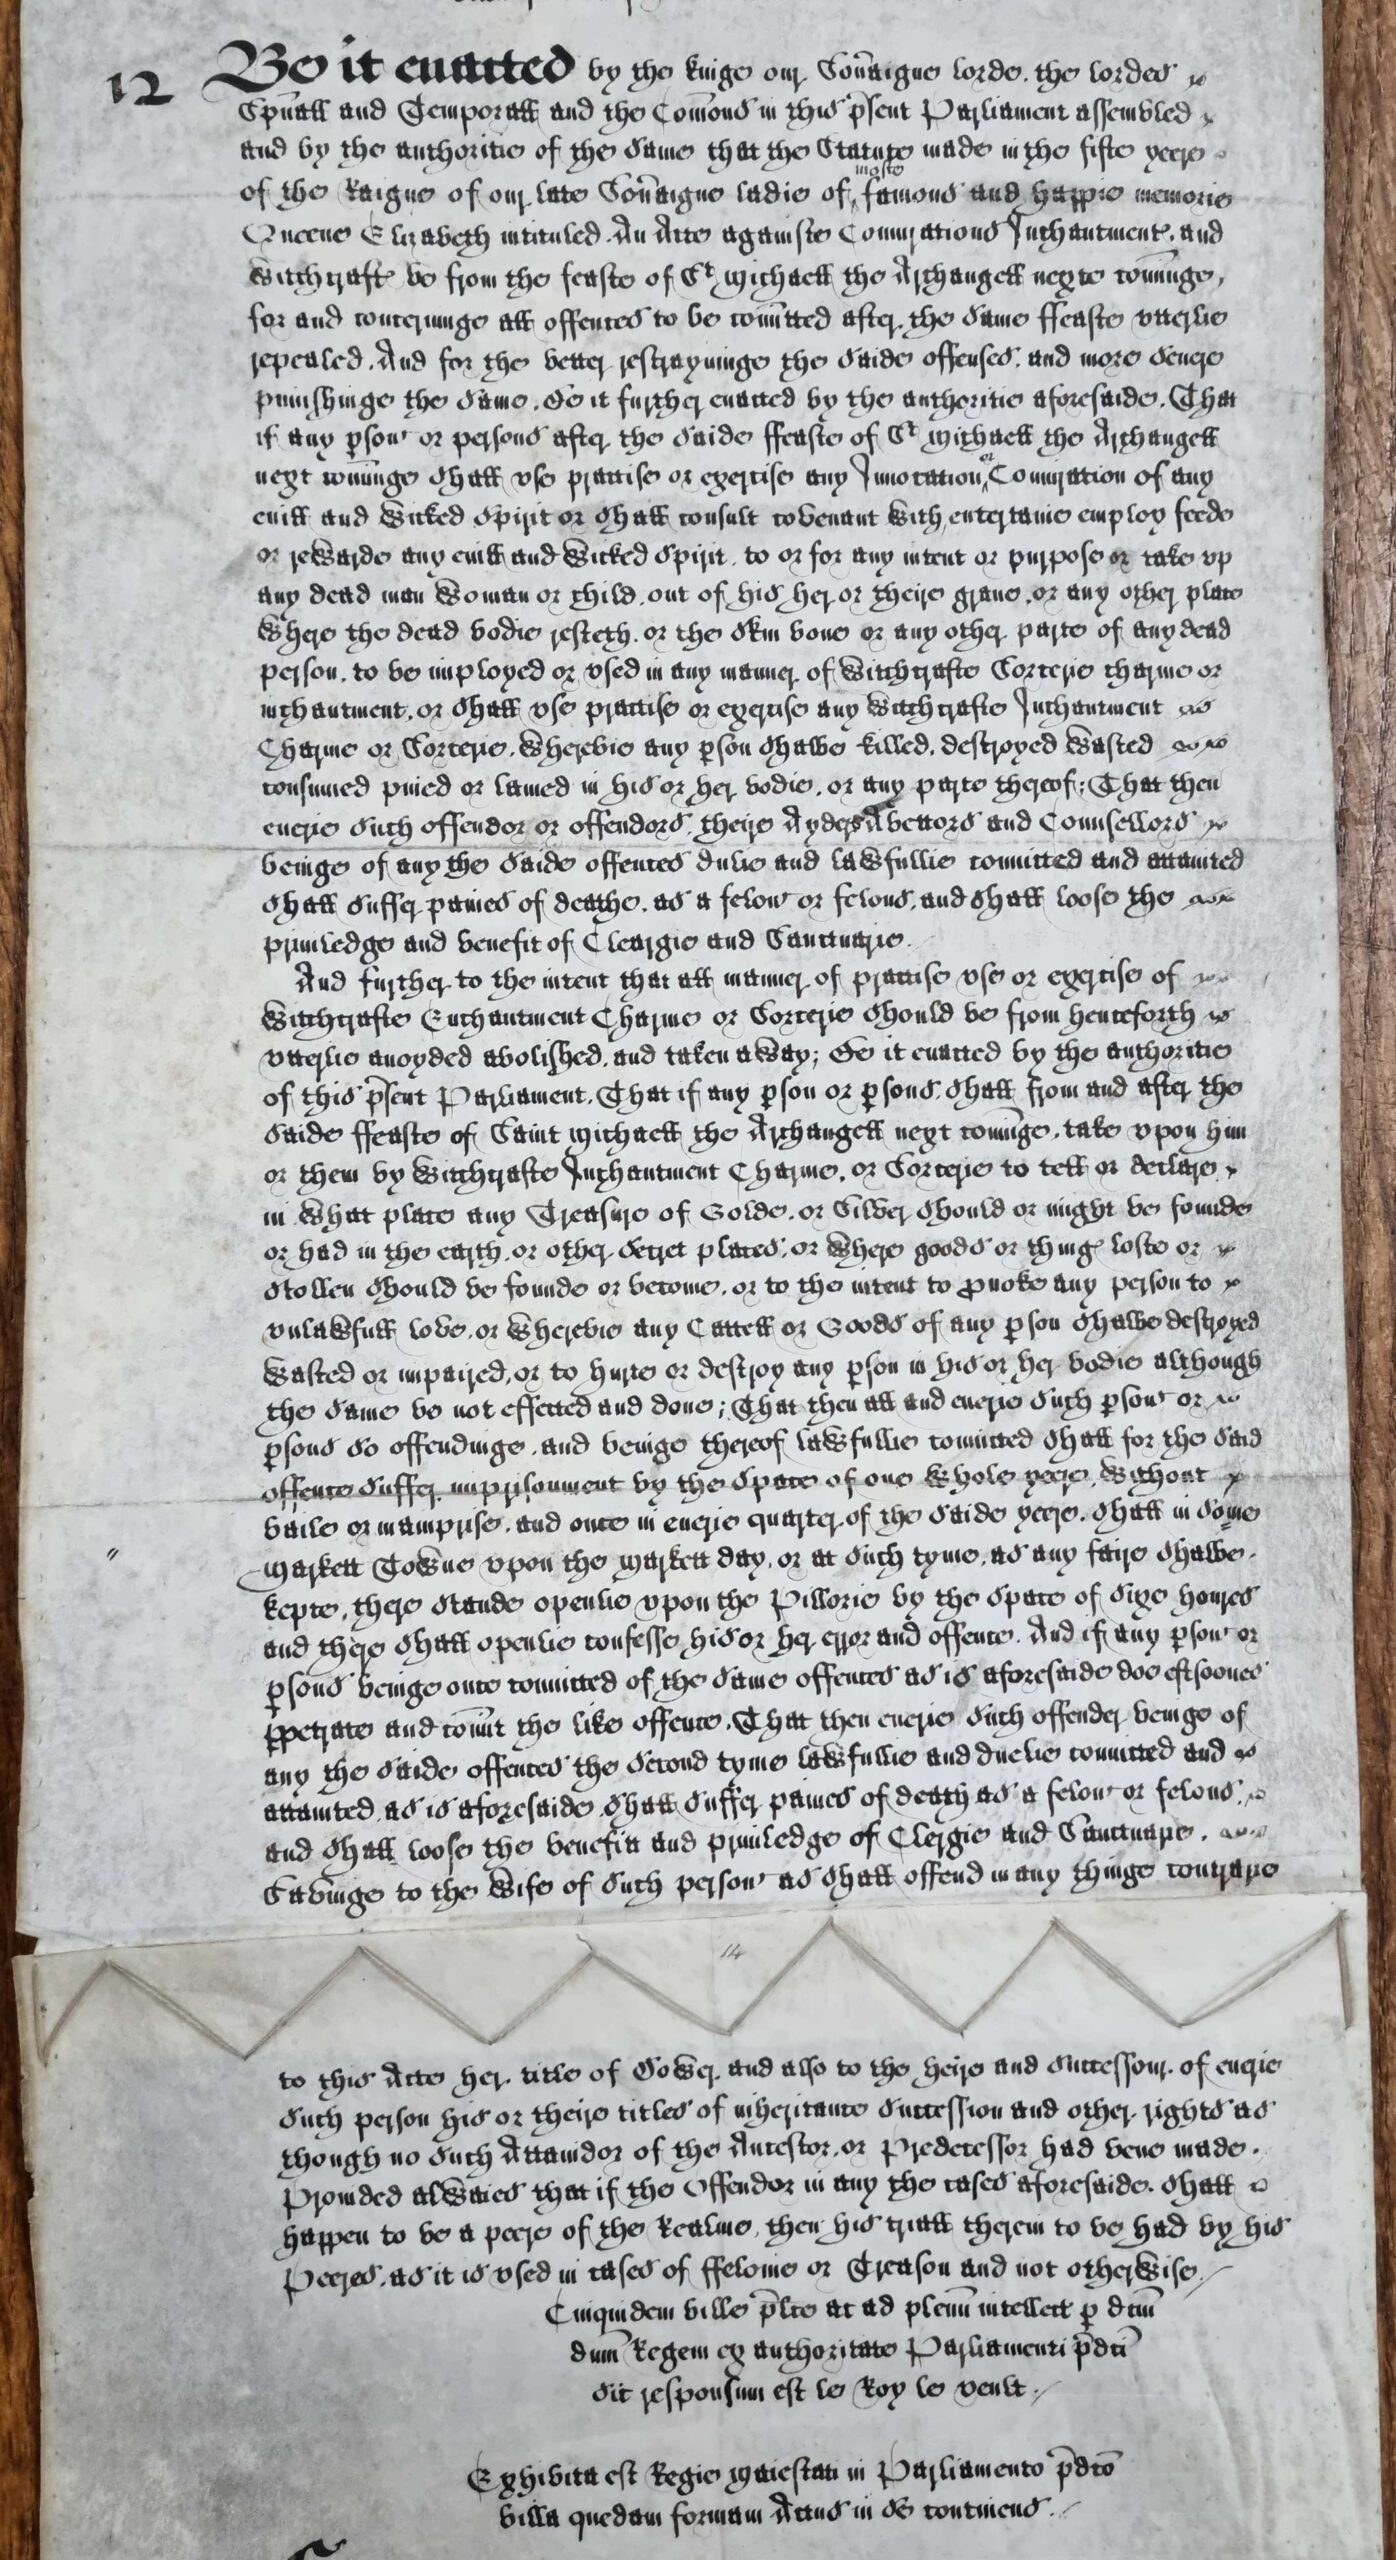 12 Be it enacted by the kinge our Sov̄aigne lorde, the lordes
Sp̄uall and Temporall and the Com̄ons in this p̄sent Parliament assembled
and by the authoritie of the same that the Statute made in the fifte yeere
of the Raigne of our late Sov̄aigne ladie of moste famous and happie memorie
Queene Elizabeth intituled An Acte againste Coniurations Inchantmentꝭ, and
witchcraftꝭ be from the feaste of St Michaell the Archangell nexte com̄inge,
for and concerninge all offences to be com̄itted after the same ffeaste vtterlie
repealed. And for the better restrayninge the saide offenses, and more severe
punishinge the same. Be it further enacted by the authoritie aforesaide. That
if any ꝑson or persons after the saide ffeaste of St Michaell the Archangell
next com̄inge shall vse practise or exercise any Invocation or Coniuration of any
evill and wicked Spirit or shall consult covenant with entertaine employ feede
or rewarde any evill and wicked Spirit, to or for any intent or purpose or take vp
any dead man woman or child, out of his her or theire grave, or any other place
where the dead bodie resteth, or the skin bone or any other parte of any dead
person, to be imployed or vsed in any manner of witchcrafte Sorcerie charme or
inchantment, or shall vse practise or exercise any witchcrafte Inchantment
Charme or Sorcerie, wherebie any ꝑson shalbe killed, destroyed wasted
consumed pined or lamed in his or her bodie, or any parte thereof; That then
everie such offendor or offendors, theire Ayders Abettors and Counsellors
beinge of any the saide offences dulie and lawfullie convicted and attainted
shall suffer paines of deathe, as a felon or felons, and shall loose the
priviledge and benefit of Cleargie and Sanctuarie.
And further to the intent that all manner of practise vse or exercise of
witchcrafte Enchantment Charme or Sorcerie should be from henceforth
vtterlie avoyded abolished, and taken away; Be it enacted by the authoritie
of this p̄sent Parliament, That if any ꝑson or ꝑsons, shall from and after the
saide ffeaste of Saint Michaell the Archangell next com̄inge, take vpon him
or them by witchcrafte Inchantment Charme, or Sorcerie to tell or declare
in what place any Treasure of Golde, or Silver should or might be founde
or had in the earth, or other secret places, or where goods or thingꝭ loste or
stollen should be founde or become, or to the intent to ꝓvoke any person to
vnlawfull love, or wherebie any Cattell or Goods of any ꝑson shalbe destroyed
wasted or impaired, or to hurte or destroy any ꝑson in his or her bodie although
the same be not effected and done; That then all and everie such ꝑson or
ꝑsons so offendinge, and beinge thereof lawfullie convicted shall for the said
offence suffer imprisonment by the space of one whole yeere, without
baile or mainprise, and once in everie quarter of the saide yeere, shall in some
markett Towne vpon the markett day, or at such tyme, as any faire shalbe
kepte, there stande openlie vpon the Pillorie by the space of sixe houres
and there shall openlie confesse his or her error and offence. And if any ꝑson or
ꝑsons beinge once convicted of the same offences as is aforesaide doe eftsoones
ꝑpetrate and com̄it the like offence, That then everie such offender beinge of
any the saide offences the second tyme lawfullie and duelie convicted and
attainted as is aforesaide shall suffer paines of death as a felon or felons,
and shall loose the benefitt and priviledge of Clergie and Sanctuarie.
Savinge to the wife of such person as shall offend in any thinge contrarie
14
to this Acte her title of Dower, and also to the heire and successour of everie
such person his or theire titles of inheritance succession and other rights as
though no such Attaindor of the Ancestor, or Predecessor had bene made.
Provided alwaies that if the Offendor in any the cases aforesaide, shall
happen to be a peere of the Realme, then his triall therein to be had by his
Peeres, as it is vsed in cases of ffelonie or Treason and not otherwise.
Cuiquidem bille p̄lce ac ad plenū intellect ꝑ dcūm
dūm Regem ex authoritate Parliamenti p̄dci
sic responsum est le Roy le veult.
Exhibita est Regie Maiestati in Parliamento p̄dco
billa quedam formam Actus in se continens.